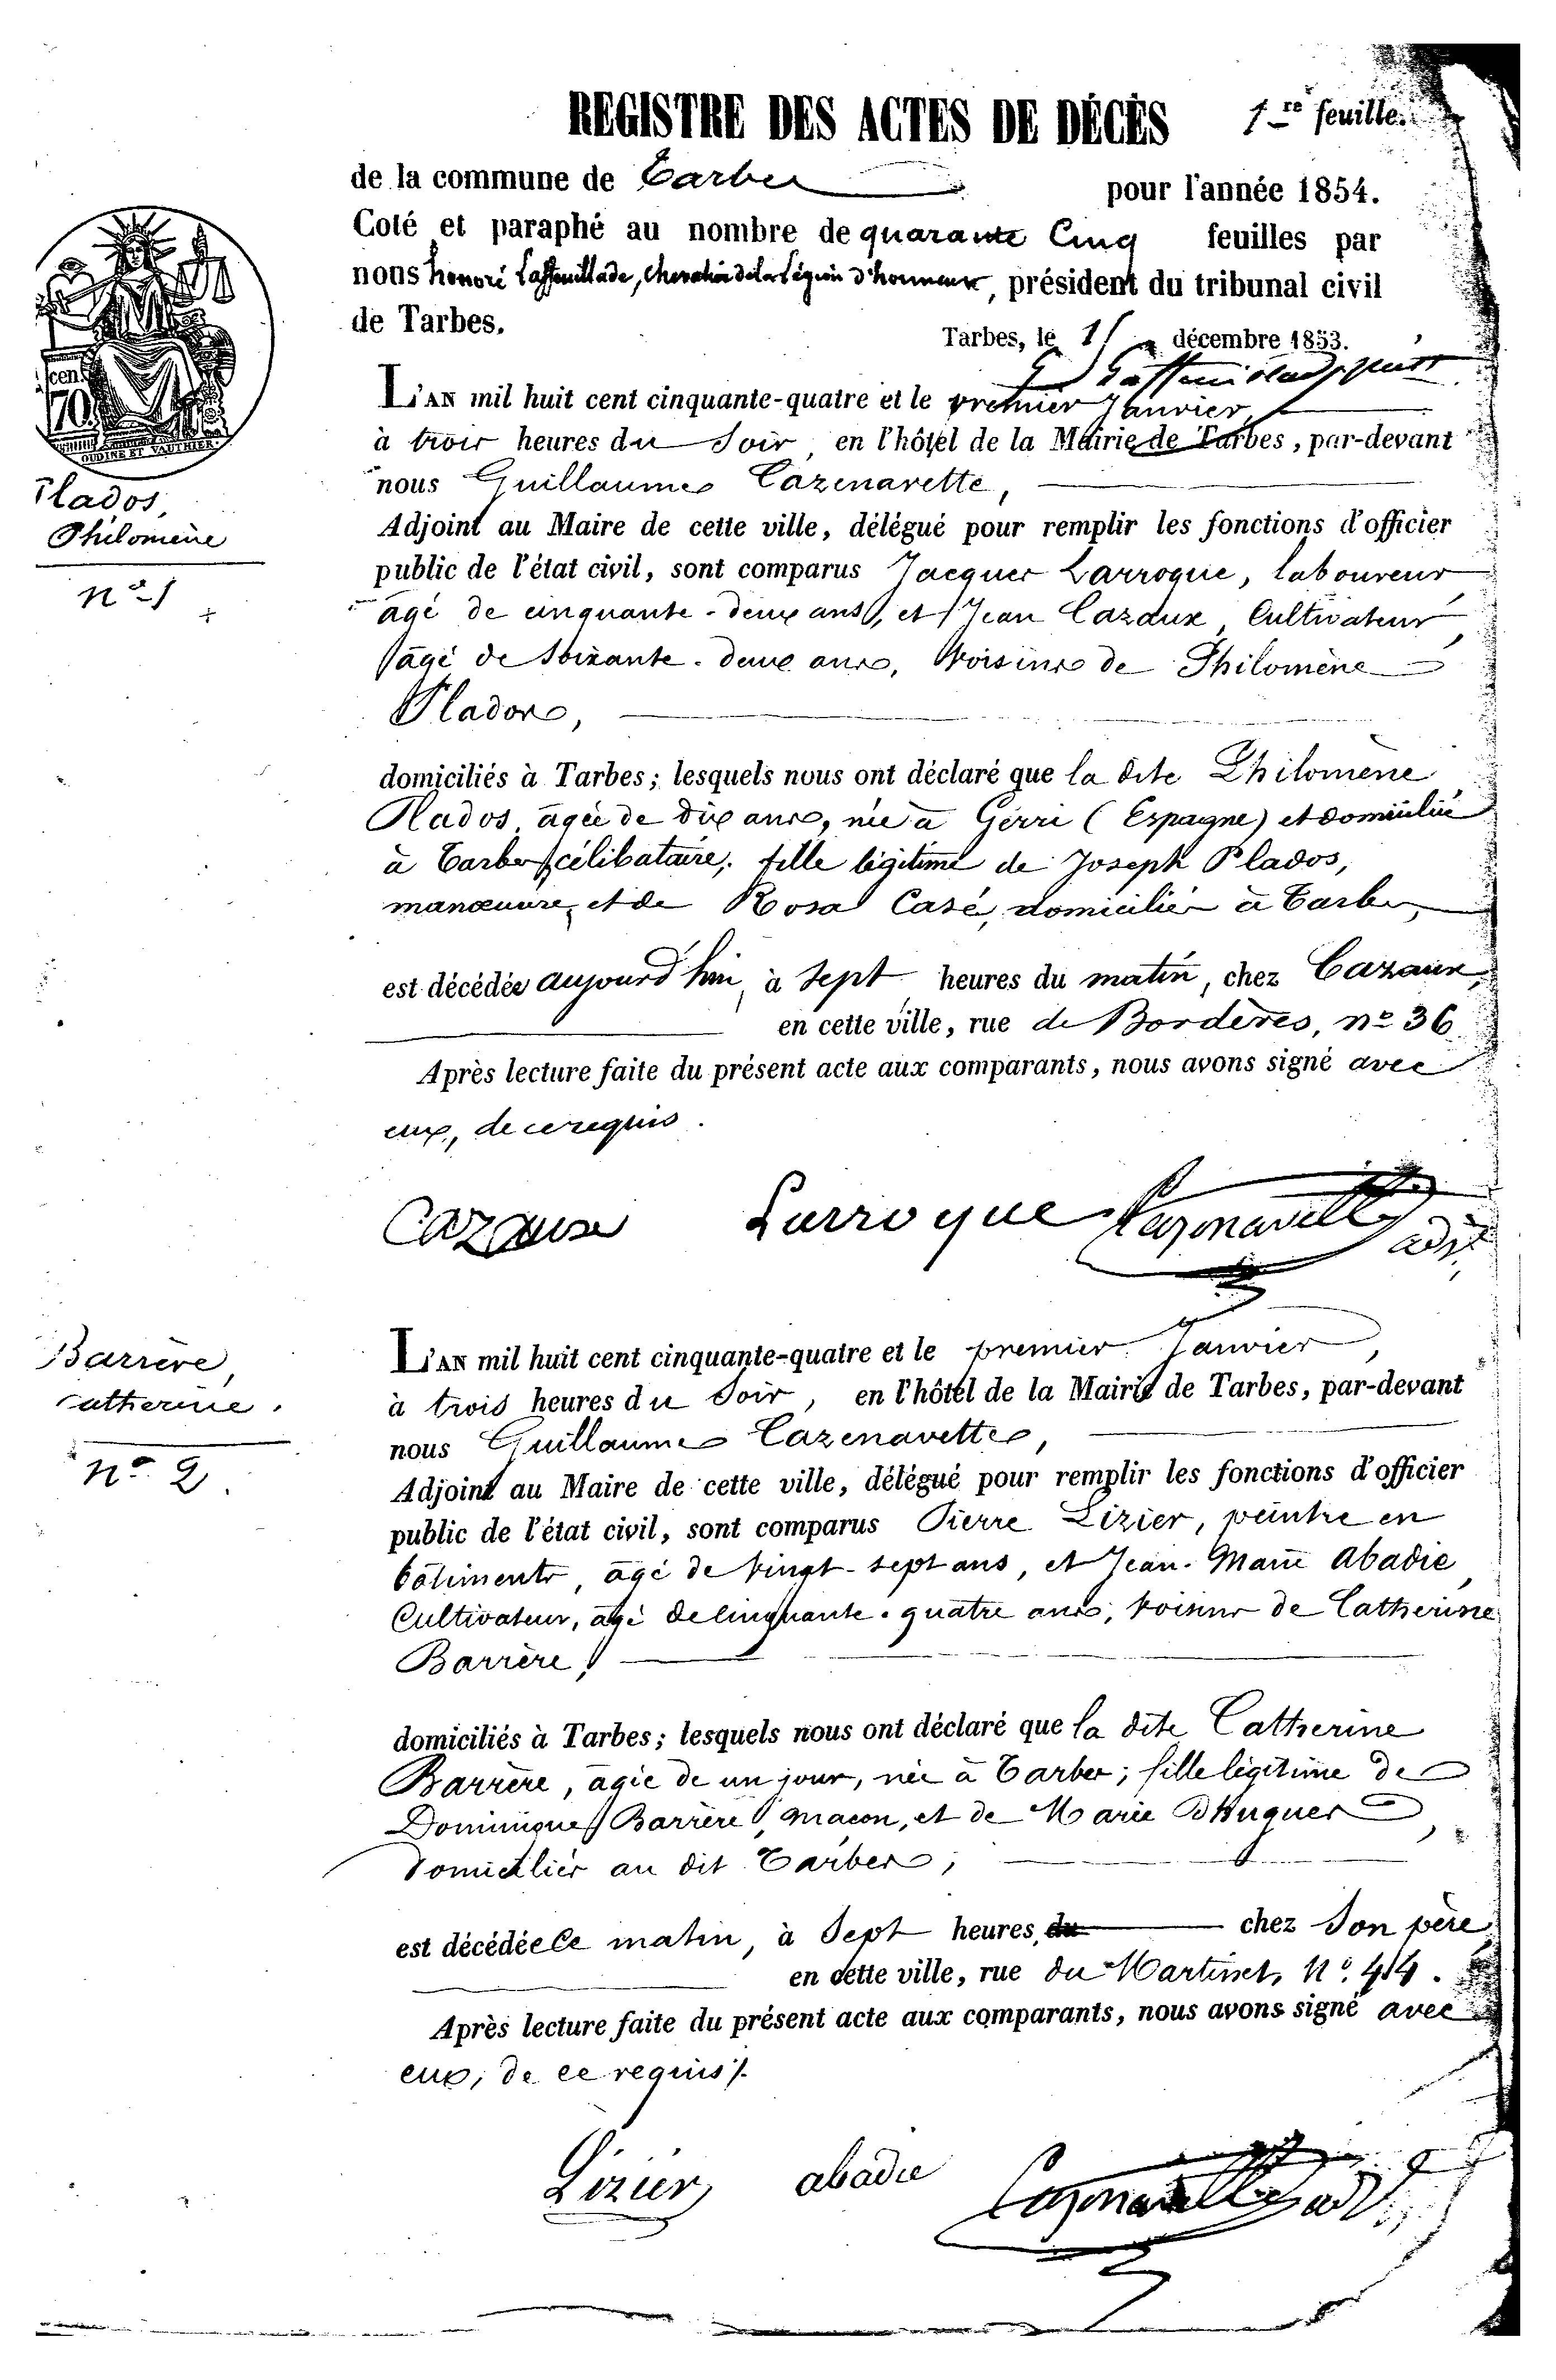 REGISTRE DES ACTES DE DÉCÈS 1re feuille.
de la commune de Tarbes pour l'année 1854.
Coté et paraphé au nombre de quarante Cinq feuilles par
nous honoré Laffeuillade, chevalier de la Légion d'honneur, président du tribunal civil
de Tarbes.
Tarbes, le décembre 1853.
cen.
70.
OUDINE ET VAUTHIER.
Plados,
Philomène
nº 1
L'AN mil huit cent cinquante-quatre et le premier Janvier,
à trois heures du Soir, en l'hôtel de la Mairie de Tarbes, par-devant
nous Guillaume Cazenavette,
Adjoint au Maire de cette ville, délégué pour remplir les fonctions d'officier
public de l'état civil, sont comparus Jacques Larroque, laboureur,
âgé de cinquante-deux ans, et Jean Cazaux, Cultivateur,
âgé de soixante-deux ans, voisins de Philomène
Plados,
domiciliés à Tarbes; lesquels nous ont déclaré que la dite Philomène
Plados, âgée de dix ans, née à Gerri (Espagne) et domiciliée
à Tarbes, célibataire, fille légitime de Joseph Plados,
manœuvre, et de Rosa Casé, domiciliés à Tarbes,
est décédée aujourd'hui, à sept heures du matin, chez Cazaux,
en cette ville, rue de Bordères, nº 36
Après lecture faite du présent acte aux comparants, nous avons signé avec
eux, de ce requis.
Cazaux Larroque Cazenavette adjt
Barrère,
Catherine.
nº 2.
L'AN mil huit cent cinquante-quatre et le premier Janvier,
à trois heures du Soir, en l'hôtel de la Mairie de Tarbes, par-devant
nous Guillaume Cazenavette,
Adjoint au Maire de cette ville, délégué pour remplir les fonctions d'officier
public de l'état civil, sont comparus Pierre Lizier, peintre en
bâtiments, âgé de vingt-sept ans, et Jean-Marie Abadie,
Cultivateur, âgé de cinquante-quatre ans, voisins de Catherine
Barrère,
domiciliés à Tarbes; lesquels nous ont déclaré que la dite Catherine
Barrère, âgée de un jour, née à Tarbes; fille légitime de
Dominique Barrère, maçon, et de Marie Dhugues,
domiciliés au dit Tarbes;
est décédée Ce matin, à Sept heures, du chez Son père,
en cette ville, rue du Martinet, Nº 44.
Après lecture faite du présent acte aux comparants, nous avons signé avec
eux, de ce requis.
Lizier abadie Cazenavette adjt